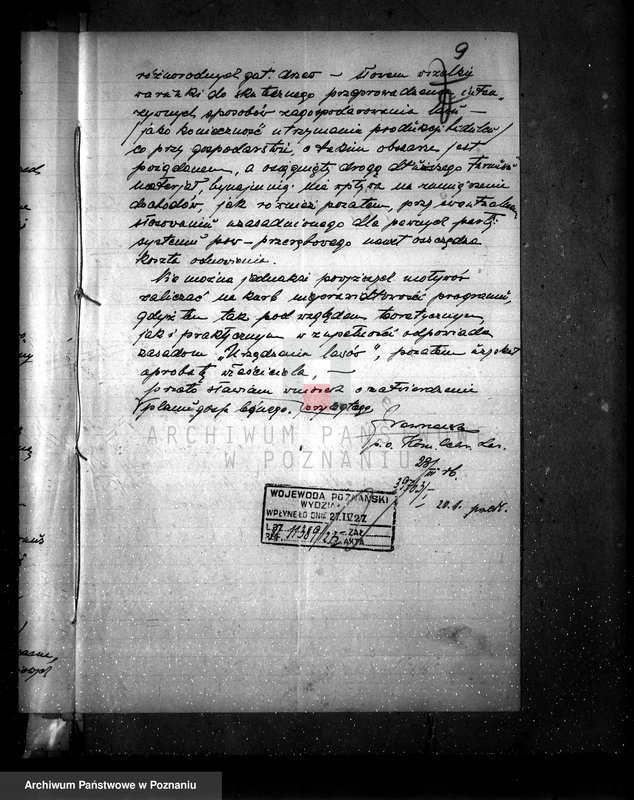 9
różnorodnych gat. drzew – słowem wszelkie
warunki do skutecznego przeprowadzenia inten-
zywnych sposobów zagospodarowania lasu –
jako konieczność utrzymania produkcji
co przy gospodarstwie, o takim obszarze jest
pożądanem, a osiągnięty drogą dłuższego
materjał, bynajmniej nie wpływa na zmniejszenie
dochodów, jak również pozatem, przy ewentualnem
stosowaniu uzasadnionego dla pewnych partji
systemu prze-przerębowego nawet oszczędza
koszta odnowienia.
Nie można jednakże powyższych motywów
zaliczać na karb nieprawidłowości programu,
gdyż ten tak pod względem teoretycznym,
jak i praktycznym w zupełności odpowiada
zasadom „Urządzania lasów", pozatem uzyskał
aprobatę właściciela, –
przeto stawiam wniosek o zatwierdzenie
planu gosp. leśnego.
p. o. Kom. Ochr. Las.
28/
20.1.
ARCHIWUM PAŃSTWOWE
W POZNANIU
WOJEWODA POZNAŃSKI
WYDZIAŁ
WPŁYNĘŁO DNIA 27.IV.27
L.DZ. 11389/27 ZAŁ.
REF. AKTA
Archiwum Państwowe w Poznaniu